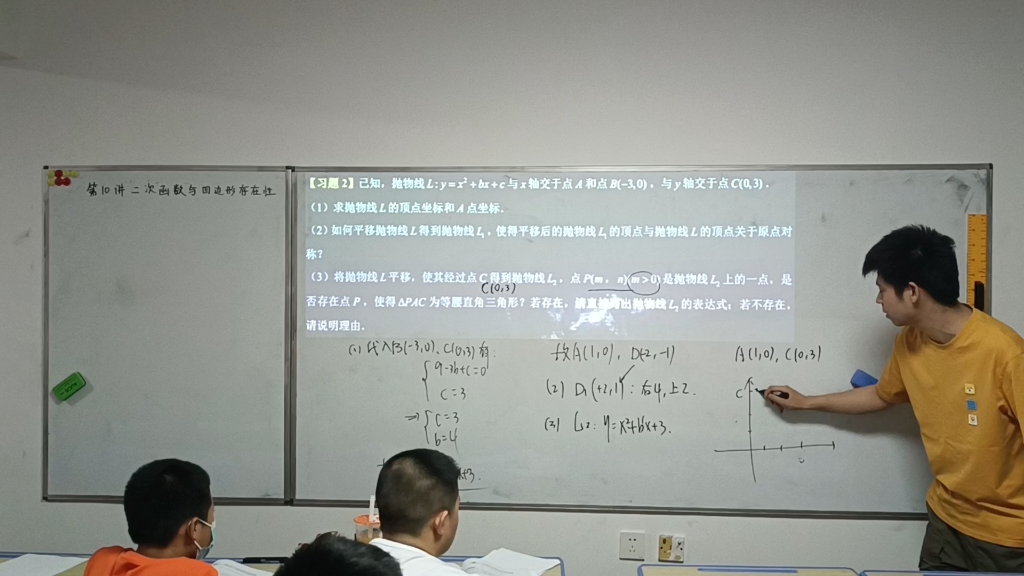 第10讲 二次函数与四边形存在性
【习题2】已知，抛物线L:y=x²+bx+c与x轴交于点A和点B(-3,0)，与y轴交于点C(0,3).
(1)求抛物线L的顶点坐标和A点坐标.
(2)如何平移抛物线L得到抛物线L₁，使得平移后的抛物线L₁的顶点与抛物线L的顶点关于原点对
称？
(3)将抛物线L平移，使其经过点C得到抛物线L₂，点P(m，n)(m>0)是抛物线L₂上的一点，是
C(0,3)
否存在点P，使得ΔPAC为等腰直角三角形？若存在，请直接写出抛物线L₂的表达式，若不存在，
请说明理由.
(1) 代入B(-3,0)、C(0,3)有:
9-3b+c=0
c=3
⇒ c=3
b=4
x+3.
故A(1,0)，D(-2,-1)
(2) D₁(+2,1)：右4,上2.
(3) L₂: y=x²+bx+3.
A(1,0)，C(0,3)
C